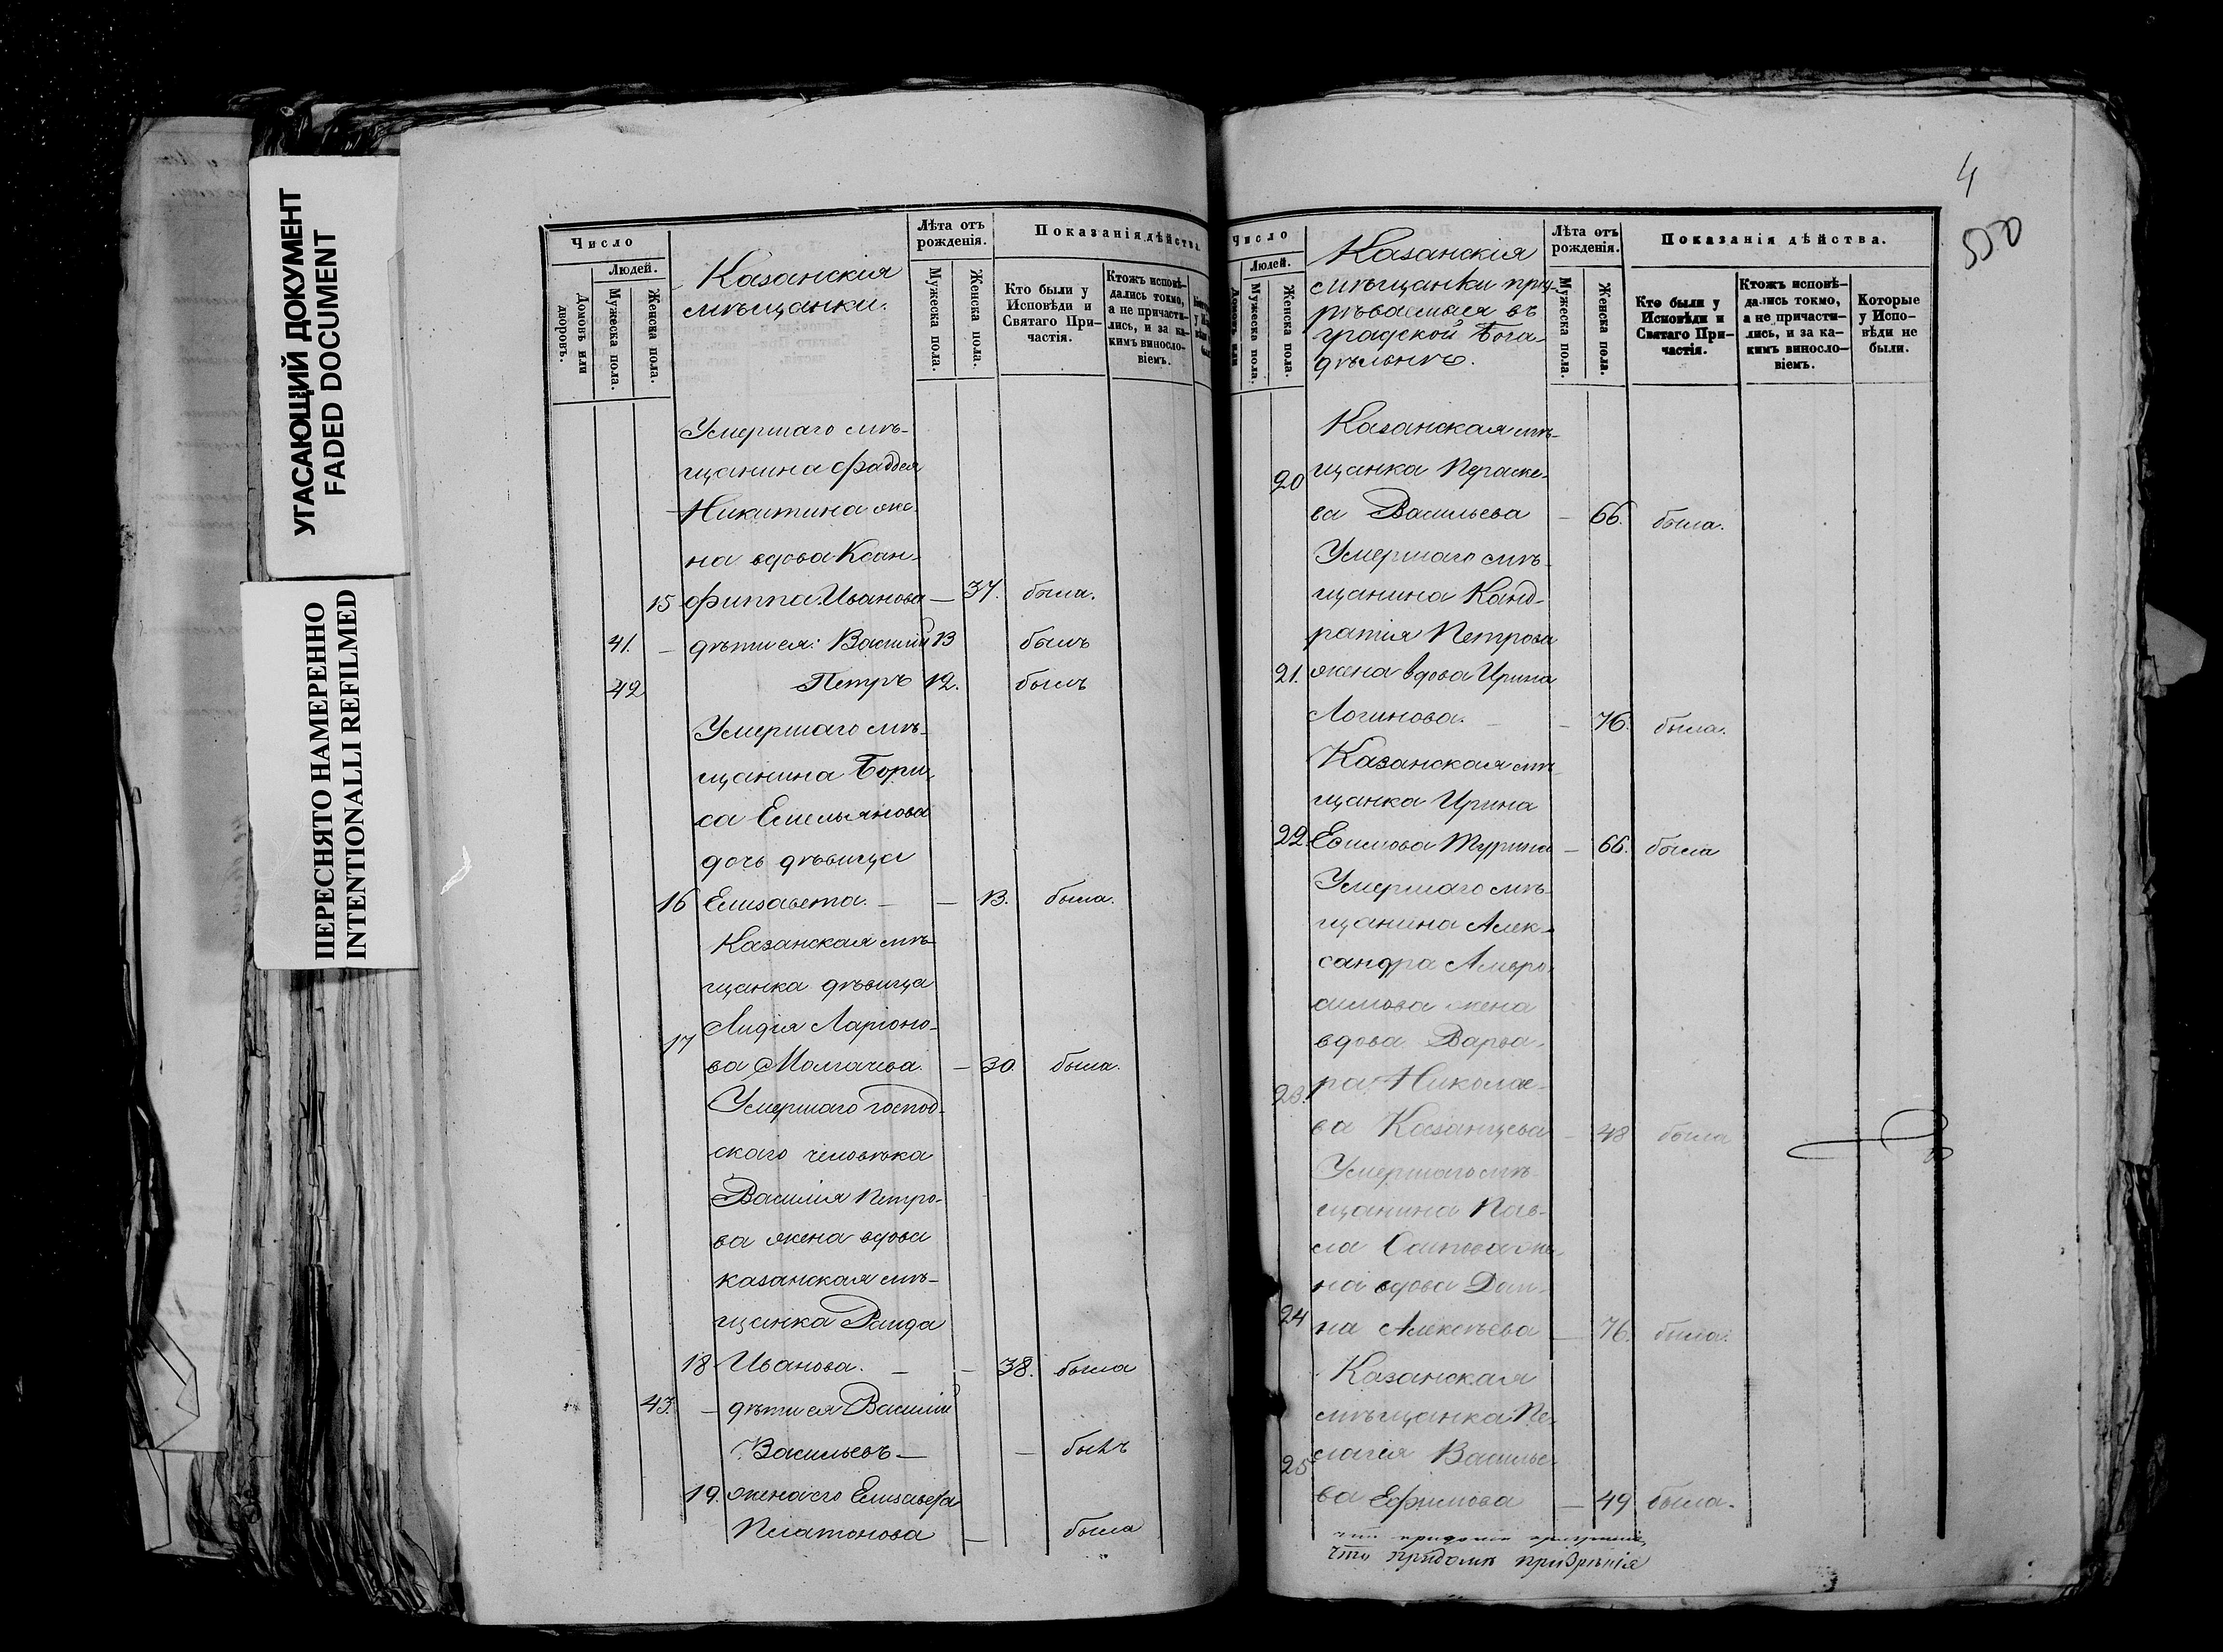 УГАСАЮЩИЙ ДОКУМЕНТ
FADED DOCUMENT
ПЕРЕСНЯТО НАМЕРЕННО
INTENTIONALLI REFILMED
Число
Людей.
Домовъ или дворовъ.
Мужеска пола.
Женска пола.
Казанскія
мѣщанки.
Лѣта отъ рожденія.
Мужеска пола.
Женска пола.
Показанія дѣйства.
Кто были у Исповѣди и Святаго Причастія.
Ктожъ исповѣдались токмо, а не причастились, и за какимъ винословіемъ.
Умершаго мѣ-
щанина Фаддея
Никитина же-
на вдова Ксан-
15 фиппа Иванова — 37. была.
41. — дѣти ея: Василій 13 былъ
42 Петръ 12. былъ
Умершаго мѣ-
щанина Бори-
са Емельянова
дочь дѣвица
16 Елизавета. — — 13. была.
Казанская мѣ-
щанка дѣвица
17 Лидія Ларіоно-
ва Молгачева. — 30. была.
Умершаго господ-
скаго человѣка
Василія Петро-
ва жена вдова
казанская мѣ-
щанка Раида
18 Иванова. — — 38. была
43. — дѣти ея Василій
Васильевъ — — былъ
19. жена его Елизавета
Платонова — была
4
550
Число
Людей.
Домовъ или
Мужеска пола.
Женска пола.
Казанскія
мѣщанки при-
рѣваемыя въ
градской Бога-
дѣльнѣ.
Лѣта отъ рожденія.
Мужеска пола.
Женска пола.
Показанія дѣйства.
Кто были у Исповѣди и Святаго Причастія.
Ктожъ исповѣдались токмо, а не причастились, и за какимъ винословіемъ.
Которые у Исповѣди не были.
Казанская мѣ-
20 щанка Параске-
ва Васильева — 66. была.
Умершаго мѣ-
щанина Канд-
ратія Петрова
21. жена вдова Ирина
Логинова. — — 76. была.
Казанская мѣ-
щанка Ирина
22. Ефимова Тюрина — 66. была
Умершаго мѣ-
щанина Алек-
сандра Амвро-
симова жена
вдова Варва-
23. ра Николае-
ва Казанцева — 48 была
Умершаго мѣ-
щанина Пав-
ла Осипова же-
на вдова Дом-
24 на Алексѣева — 76. была.
Казанская
мѣщанка Пе-
25 лагея Василье-
ва Ефимова — 49 была.
что придомѣ призрѣнія